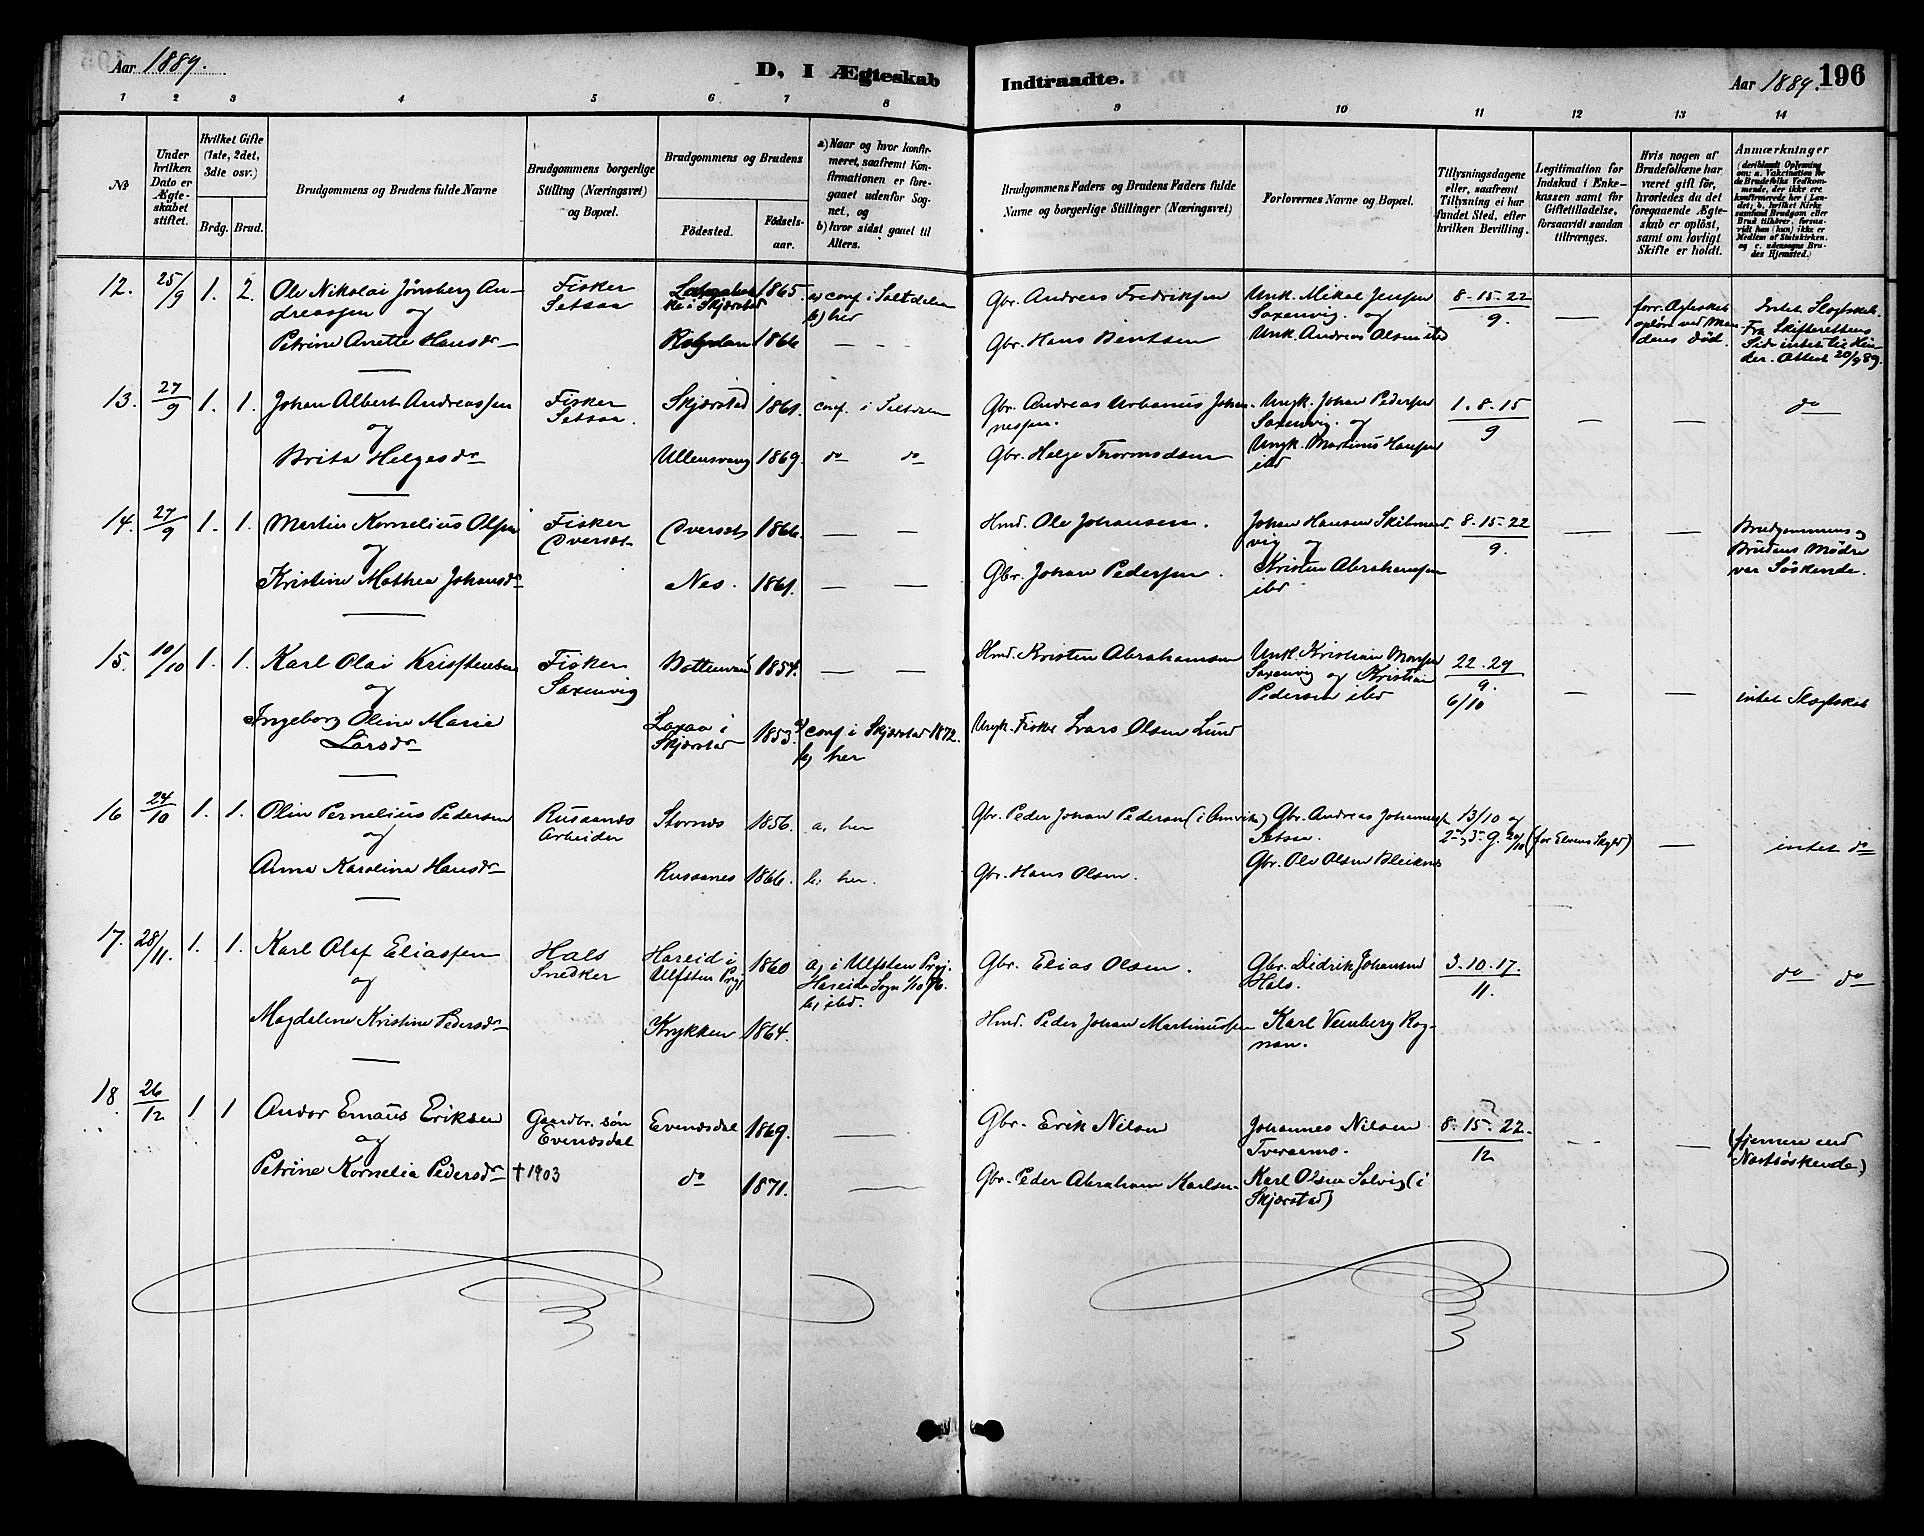 Aar 1889.
D, I Ægteskab
Indtraadte.
Aar 1889.
196
1 2 3 4 5 6 7 8 9 10 11 12 13 14
№
Under hvilken Dato er Ægteskabet stiftet.
Hvilket Gifte (1ste, 2det, 3die osv.)
Brdg. Brud.
Brudgommens og Brudens fulde Navne
Brudgommens borgerlige Stilling (Næringsvei) og Bopæl.
Brudgommens og Brudens
Födested.
Födselsaar.
a) Naar og hvor konfirmeret, saafremt Konfirmationen er foregaaet udenfor Sognet, og
b) hvor sidst gaaet til Alters.
Brudgommens Faders og Brudens Faders fulde Navne og borgerlige Stillinger (Næringsvei)
Forlovernes Navne og Bopæl.
Tillysningsdagene eller, saafremt Tillysning ei har fundet Sted, efter hvilken Bevilling.
Legitimation for Indskud i Enkekassen samt for Giftetilladelse, forsaavidt saadan tiltrænges.
Hvis nogen af Brudefolkene har været gift för, hvorledes da det foregaaende Ægteskab er oplöst, samt om lovligt Skifte er holdt.
Anmærkninger (deriblandt Oplysning om: a. Vakcination for de Brudefolks Vedkommende, der ikke ere konfirmerede her i Landet; b. hvilket Kirkesamfund Brudgom eller Brud tilhører, forsaavidt han (hun) ikke er Medlem af Statskirken, og c. udensogns Brudes Hjemsted.
12. 25/9 1. 2. Ole Nikolai Jønsberg Andreassen
og
Petrine Anette Hansdr
Fisker
Setsaa
i Skjerstad 1865. a) conf. i Saltdalen
b) her
Rognan 1866 — —
Gbr. Andreas Fredriksen
Gbr. Hans Bentsen
Unk. Mikal Jensen
Saxenvig. og
Unk. Andreas Olsen ibd
8-15-22
9.
—
forr. Ægteskab
opløst ved Man
dens Død.
Intet Slægtskab.
Fra Skifterettens
Side intet til Hin
der. Attest 20/9 89.
13. 27/9 1. 1. Johan Albert Andreassen
og
Brita Helgesdr
Fisker
Setsaa.
Skjerstad 1861. conf. i Saltdalen
Ullensvang 1869. do do
Gbr. Andreas Urbanus Johan
nessen.
Gbr. Helge Thormodsen
Ungk. Johan Pedersen
Saxenvig. og
Ungk. Martinus Hansen
ibd
1. 8. 15
9
— — do
14. 27/9 1. 1. Martin Kornelius Olsen
og
Kristine Mathea Johansdr
Fisker
Oversæt
Oversæt 1866. — —
Nes. 1861. — —
Hmd. Ole Johansen.
Gbr. Johan Pedersen
Johan Hansen Skibmands
vig og
Kristen Abrahamsen
ibd
8-15-22
9.
— —
Brudgommens og
Brudens Mødre
var Söskende.
15. 10/10 1. 1. Karl Olai Kristensen
og
Ingeborg Oline Marie
Larsdr
Fisker
Saxenvig
Bottenvand 1854. — —
Laxaa i
Skjerstad 1853. a) conf i Skjerstad 1872.
b) her
Hmd. Kristen Abrahamsen
Ungk. Fisker Lars Olsen Lund
Unk. Kristian Monsen
Saxenvig og Kristian
Pedersen ibd
22. 29
9.
6/10
— — intet Slægtskab
16 24/10 1. 1. Olin Pernelius Pedersen
og
Anna Karolina Hansdr
Rusaanes
Arbeider
Stornes 1856. a, her
Rusaanes 1866. b, her.
Gbr. Peder Johan Pedersen (i Omvik)
Gbr. Hans Olsen.
Gbr. Andreas Johannes
Setsaa.
Gbr. Ole Olsen Bleiknes
13/10 og
2 , 3 G. 20/10 (for Elvens Skyld)
— intet do
17. 28/11. 1. 1. Karl Olaf Eliassen
og
Magdalene Kristine Pedersdr
Hals
Snedker
Hareid i
Ulfsten Prgj 1860 a, i Ulfsten Prgj.
Hareids Sogn 1/10 76.
b, ibd.
Krykken 1864.
Gbr. Elias Olsen.
Hmd. Peder Johan Martinussen
Gbr. Didrik Johansen
Hals.
Karl Venberg Rog-
nan.
3. 10. 17.
11.
do do
18. 26/12 1 1 Andor Emaus Eriksen
og
Petrine Kornelia Pedersdr † 1903
Gaardbr. søn
Evenesdal
Evenesdal 1869. —
do 1871. —
Gbr. Erik Nilsen
Gbr. Peder Abraham Karlsen
Johannes Nilsen
Tveraamo.
Karl Olsen Solvig (i
Skjerstad)
8-15-22.
12
— — (fjernere end
Næstsöskende)